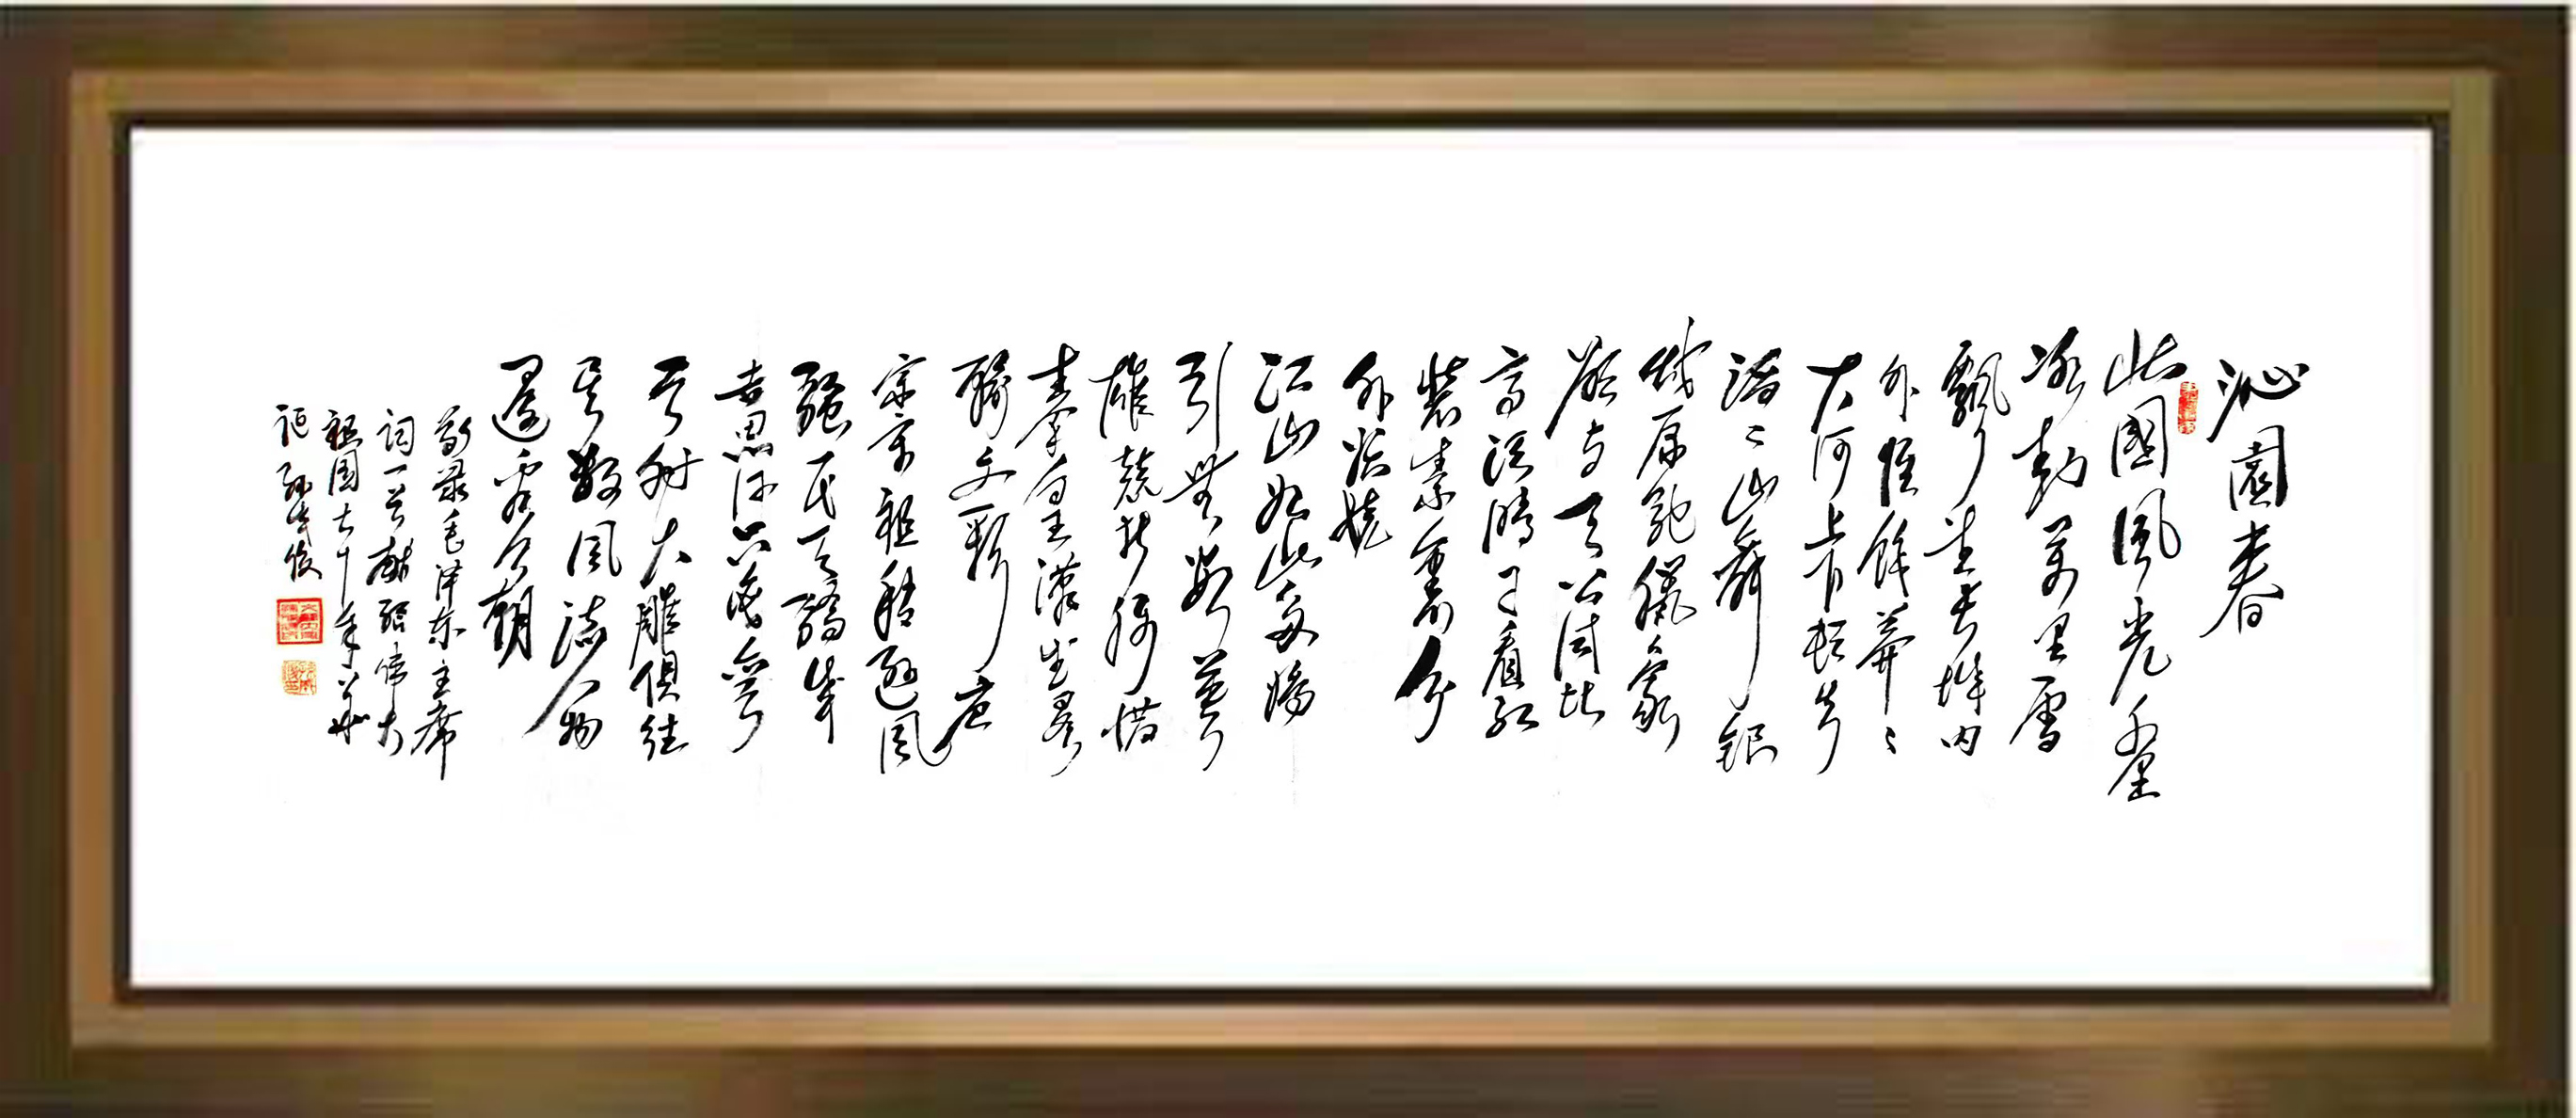 沁園春
北國風光千里
冰封萬里雪
飄望長城内
外惟餘莽〻
大河上下頓失
滔〻山舞銀
蛇原馳蠟象
欲与天公試比
高須晴日看红
裝素裹分
外妖嬈
江山如此多嬌
引無數英
雄競折腰惜
秦皇漢武畧
輸文彩唐
宗宋祖稍遜風
騷一代天驕成
吉思汗只識彎
弓射大雕俱往
矣數風流人物
還看今朝
敬录毛泽东主席
词一首献给伟大
祖国七十年华
诞